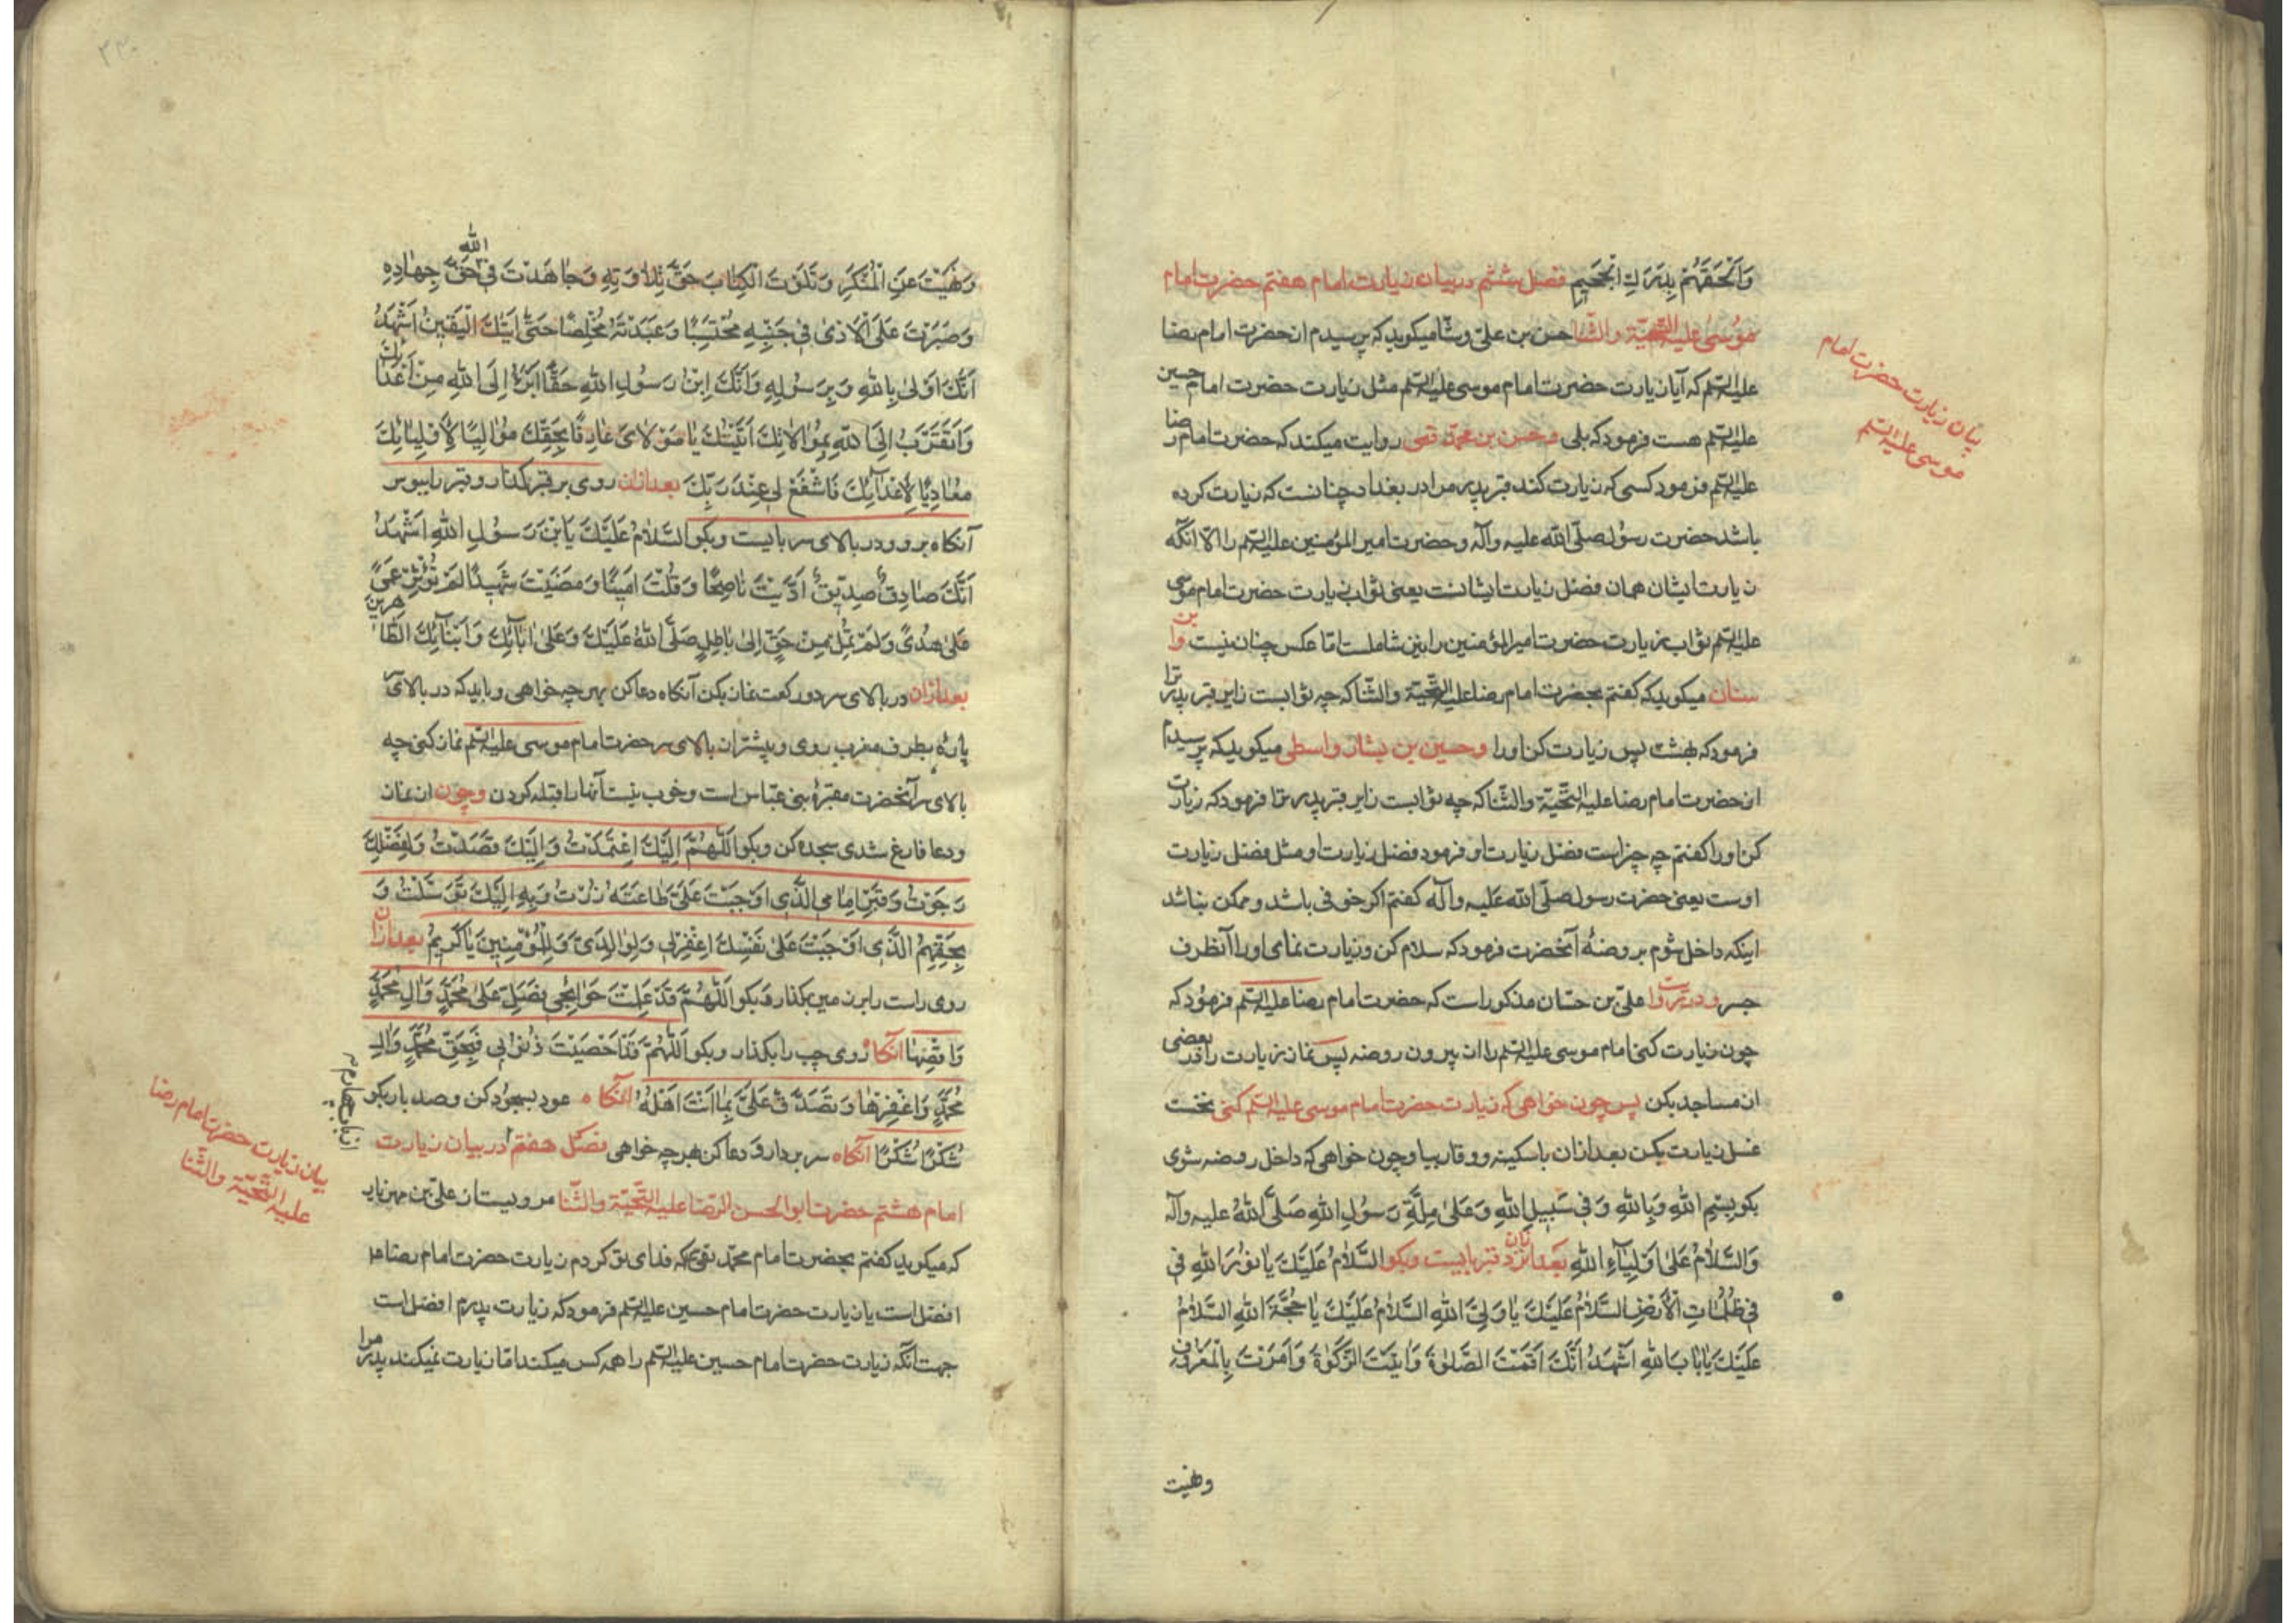 وَاَلْحَقَهُمْ بِدَرَكِ الْجَحيمِ فصل ششم در بيان زيارت امام هفتم حضرت امام
موسى عليه التحيّة والثنا حسن بن علىّ وشّا ميكويد كه پرسيدم از حضرت امام رضا
عليه السّلم كه آيا زيارت حضرت امام موسى عليه السّلم مثل زيارت حضرت امام حسين
عليه السّلم هست فرمود كه بلى وحسن بن محمّد قمى روايت ميكند كه حضرت امام رضا
عليه السّلم فرمود كسى كه زيارت كند قبر پدر مرا در بغداد چنانست كه زيارت كرده
باشد حضرت رسول صلّى الله عليه وآله وحضرت امير المؤمنين عليه السّلم را الاّ آنكه
زيارت ايشان همان فضل زيارت ايشانست يعنى ثواب زيارت حضرت امام موسى
عليه السّلم ثواب زيارت حضرت امير المؤمنين را نيز شاملست امّا عكس چنان نيست وابن
سنان ميكويد كه كفتم بحضرت امام رضا عليه التّحيّة والثّنا كه چه ثوابست زاير قبر پدر ترا
فرمود كه بهشت پس زيارت كن او را وحسين بن بشار واسطى ميكويد كه پرسيدم
از حضرت امام رضا عليه التّحيّة والثّنا كه چه ثوابست زاير قبر پدر ترا فرمود كه زيارت
كن او را كفتم چه چيز است فضل زيارت او فرمود فضل زيارت او مثل فضل زيارت
اوست يعنى حضرت رسول صلّى الله عليه وآله كفتم اكر خوفى باشد وممكن نباشد
اينكه داخل شوم بروضهٔ آنحضرت فرمود كه سلام كن وزيارت نماى او را از آنطرف
جسر ودر روايت علىّ بن حسّان مذكور است كه حضرت امام رضا عليه السّلم فرمود كه
چون زيارت كنى امام موسى عليه السّلم را از بيرون روضه پس نماز زيارت را در بعضى
از مساجد بكن پس چون خواهى كه زيارت حضرت امام موسى عليه السّلم كنى نخست
غسل زيارت بكن بعد از آن با سكينه ووقار بيا وچون خواهى كه داخل روضه شوى
بكو بِسْمِ اللهِ وَبِاللهِ وَفى سَبيلِ اللهِ وَعَلى مِلَّةِ رَسُولِ اللهِ صَلَّى اللهُ عليه وآله
وَالسَّلامُ عَلى اَوْلِيآءِ اللهِ بعد از آن نزد قبر بايست وبكو السَّلامُ عَلَيْكَ يا نُورَ اللهِ فى
فى ظُلُماتِ الْاَرْضِ السَّلامُ عَلَيْكَ يا وَلِىَّ اللهِ السَّلامُ عَلَيْكَ يا حُجَّةَ اللهِ السَّلامُ
عَلَيْكَ يا بابَ اللهِ اَشْهَدُ اَنَّكَ اَقَمْتَ الصَّلوةَ وَاتَيْتَ الزَّكوةَ وَاَمَرْتَ بِالْمَعْرُوفِ
ونهيت
بيان زيارت حضرت امام
موسى عليه السّلم
٢٣٠
وَنَهَيْتَ عَنِ الْمُنْكَرِ وَتَلَوْتَ الْكِتابَ حَقَّ تِلاوَتِهِ وَجاهَدْتَ فِى اللهِ حَقَّ جِهادِهِ
وَصَبَرْتَ عَلَى الْاَذى فى جَنْبِهِ مُحْتَسِبًا وَعَبَدْتَهُ مُخْلِصًا حَتّى اَتيكَ الْيَقينُ اَشْهَدُ
اَنَّكَ اَوْلى بِاللهِ وَبِرَسُولِهِ وَاَنَّكَ اِبْنُ رَسُولِ اللهِ حَقًّا اَبْرَءُ اِلَى اللهِ مِنْ اَعْدائِكَ
وَاَتَقَرَّبُ اِلَى اللهِ بِمُوالاتِكَ اَتَيْتُكَ يا مَوْلاىَ عارِفًا بِحَقِّكَ مُوالِيًا لِاَوْلِيائِكَ
مُعادِيًا لِاَعْدآئِكَ فَاشْفَعْ لى عِنْدَ رَبِّكَ بعد از آن روى بر قبر كذار وقبر را ببوس
آنكاه برو ودر بالاى سر بايست وبكو السَّلامُ عَلَيْكَ يَا بْنَ رَسُولِ اللهِ اَشْهَدُ
اَنَّكَ صادِقٌ صِدّيقٌ اَدَّيْتَ ناصِحًا وَقُلْتَ اَمينًا وَمَضَيْتَ شَهيدًا لَمْ تُؤْثِرْ عَمىً
عَلى هُدىً وَلَمْ تَمِلْ مِنْ حَقٍّ اِلى باطِلٍ صَلَّى اللهُ عَلَيْكَ وَعَلى ابآئِكَ وَاَبْنآئِكَ الطّاهِرينَ
بعد از آن در بالاى سر دو ركعت نماز بكن آنكاه دعا كن بهر چه خواهى وبايد كه در بالاى سر
پارهٔ بطرف مغرب روى وپيشتر از بالاى سر حضرت امام موسى عليه السّلم نماز كنى چه
بالاى سر آنحضرت مقبرهٔ بنى عبّاس است وخوب نيست آنها را قبله كردن وچون از نماز
ودعا فارغ شدى سجده كن وبكو اَللّهُمَّ اِلَيْكَ اعْتَمَدْتُ وَاِلَيْكَ قَصَدْتُ وَلِفَضْلِكَ
رَجَوْتُ وَقَبْرَ اِمامِىَ الَّذى اَوْجَبْتَ عَلَىَّ طاعَتَهُ زُرْتُ وَبِهِ اِلَيْكَ تَوَسَّلْتُ وَ
بِحَقِّهِمُ الَّذى اَوْجَبْتَ عَلى نَفْسِكَ اغْفِرْلى وَلِوالِدَىَّ وَلِلْمُؤْمِنينَ يا كَريمُ بعد از آن
روى راست را بر زمين بكذار وبكو اَللّهُمَّ قَدْ عَلِمْتَ حَوائِجى فَصَلِّ عَلى مُحَمَّدٍ وَالِ مُحَمَّدٍ
وَاقْضِها آنكاه روى چپ را بكذار وبكو اَللّهُمَّ قَدْ اَحْصَيْتَ ذُنُوبى فَبِحَقِّ مُحَمَّدٍ وَالِ
مُحَمَّدٍ وَاغْفِرْها وَتَصَدَّقْ عَلَىَّ بِما اَنْتَ اَهْلُهُ آنكاه عود بسجود كن وصد بار بكو
شُكْرًا شُكْرًا آنكاه سر بردار ودعا كن هر چه خواهى فصل هفتم در بيان زيارت
امام هشتم حضرت ابو الحسن الرّضا عليه التّحيّة والثّنا مرويست از علىّ بن مهزيار
كه ميكويد كفتم بحضرت امام محمّد تقى كه فداى تو كردم زيارت حضرت امام رضا
افضل است يا زيارت حضرت امام حسين عليه السّلم فرمود كه زيارت پدرم افضل است
جهت آنكه زيارت حضرت امام حسين عليه السّلم را همه كس ميكند امّا زيارت نميكند پدر مرا
از باب چهارم
بيان زيارت حضرت امام رضا
عليه التّحيّة والثّنا